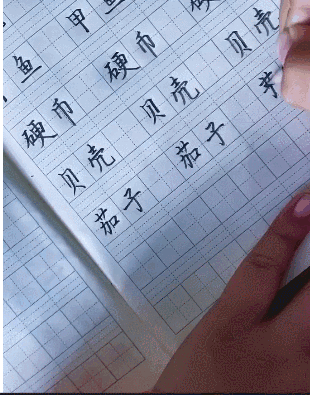 鱼 甲鱼
硬币 硬币
贝壳 贝壳 贝壳
茄子 茄子